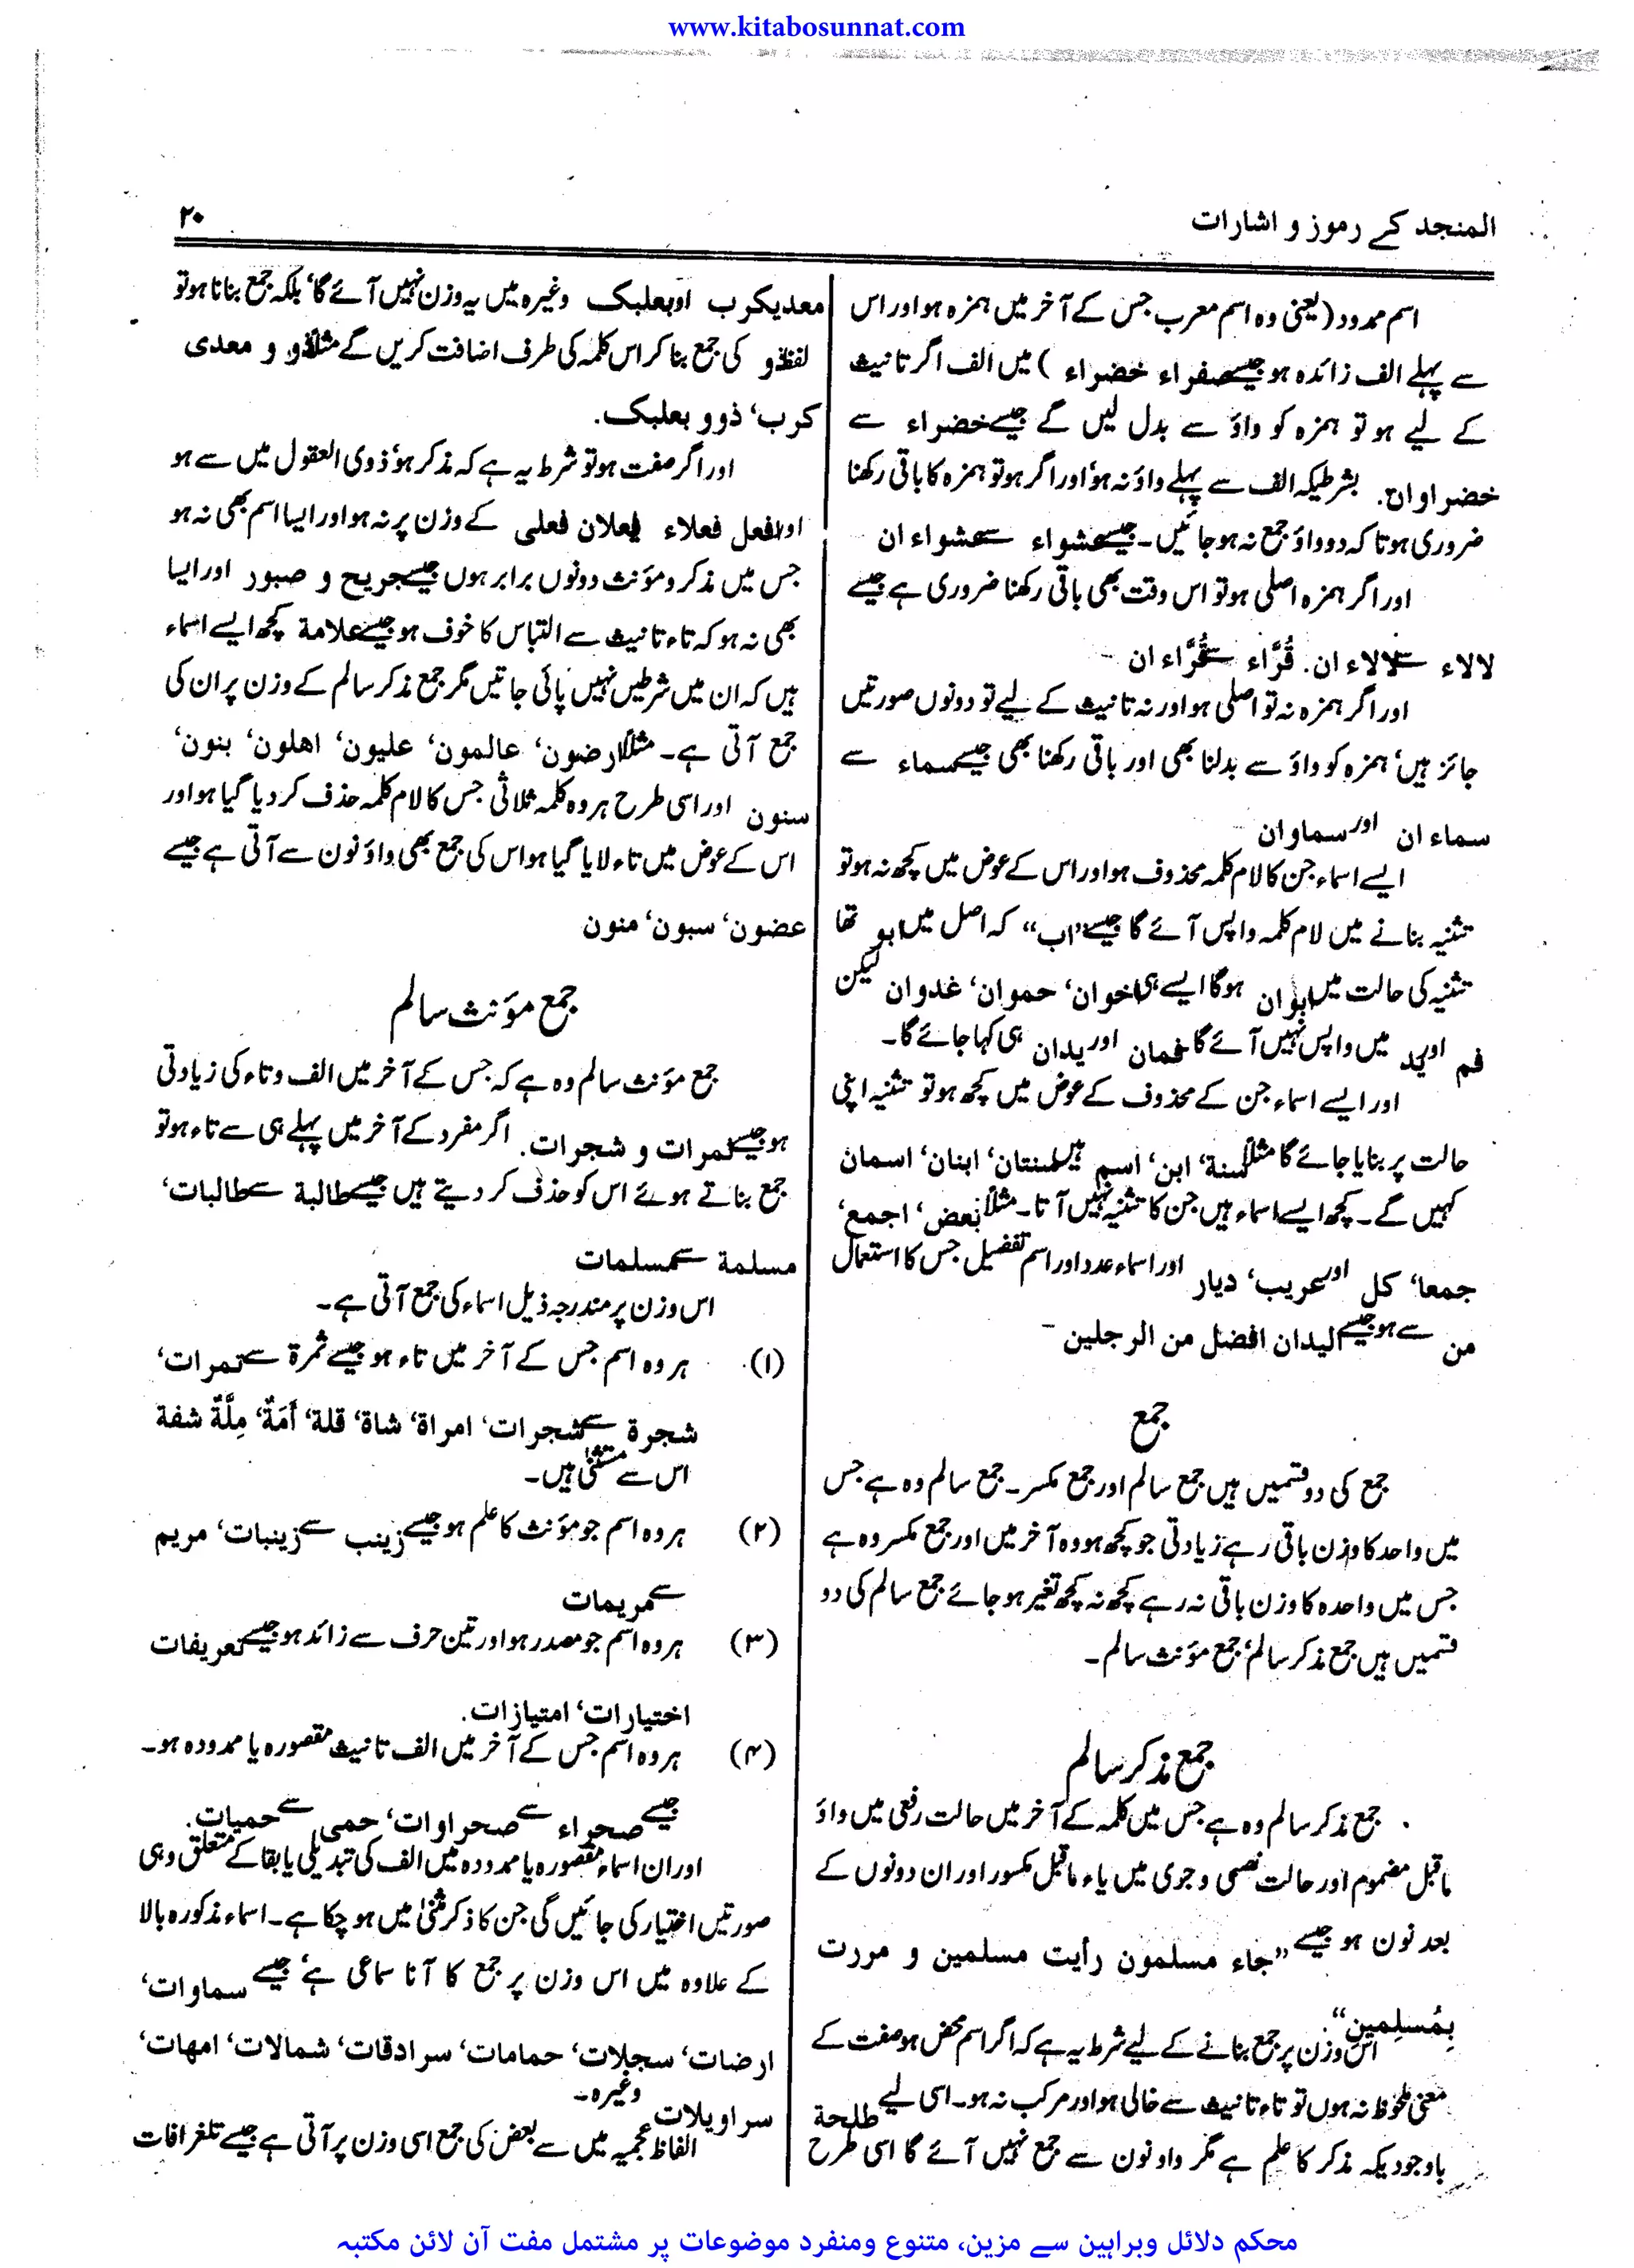 www.kitabosunnat.com
المنجد کے رموز و اشارات
۲۰
اسم ممدود (یعنی وہ اسم معرب جس کے آخر میں ہمزہ ہو اور اس
سے پہلے الف زائدہ ہو جیسے صفراء خضراء ) میں الف اگر تانیث
کے لیے ہو تو ہمزہ کو واؤ سے بدل لیں گے جیسے خضراء سے
خضراوان. بشرطیکہ الف سے پہلے واؤ نہ ہو‘ اور اگر ہو تو ہمزہ کا باقی رکھنا
ضروری ہوتا کہ دو واؤ جمع نہ ہو جائیں۔ جیسے عشواء سے عشواء ان
اور اگر ہمزہ اصلی ہو تو اس وقت بھی باقی رکھنا ضروری ہے جیسے
لالاء سے لالاء ان. قُرَّاء سے قُرَّاء ان ۔
اور اگر ہمزہ نہ تو اصلی ہو اور نہ تانیث کے لیے تو دونوں صورتیں
جائز ہیں‘ ہمزہ کو واؤ سے بدلنا بھی اور باقی رکھنا بھی جیسے سماء سے
سماء ان اور سماوان
ایسے اسماء جن کا لام کلمہ محذوف ہو اور اس کے عوض میں کچھ نہ ہو تو
تثنیہ بنانے میں لام کلمہ واپس آئے گا جیسے ”اب“ کہ اصل میں ابو تھا
تثنیہ کی حالت میں ابوان ہوگا ایسے ہی اخوان‘ حموان‘ غدوان لیکن
فم اور ید میں واپس نہیں آئے گا فمان اور یدان ہی کہا جائے گا۔
اور ایسے اسماء جن کے محذوف کے عوض میں کچھ ہو تو تثنیہ اپنی
حالت پر بنایا جائے گا مثلاً سنة‘ ابن‘ اسم میں سنتان‘ ابنان‘ اسمان
کہیں گے۔ کچھ ایسے اسماء ہیں جن کا تثنیہ نہیں آتا۔ مثلاً بعض‘ اجمع‘
جمعا‘ کل اور عریب‘ دیار اور اسماء عدد اور اسم تفضیل جس کا استعمال
من سے ہو جیسے الیدان افضل من الرجلین ۔
جمع
جمع کی دو قسمیں ہیں جمع سالم اور جمع مکسر۔ جمع سالم وہ ہے جس
میں واحد کا وزن باقی رہے زیادتی جو کچھ ہو وہ آخر میں اور جمع مکسر وہ ہے
جس میں واحدہ کا وزن باقی نہ رہے کچھ نہ کچھ تغیر ہو جائے جمع سالم کی دو
قسمیں ہیں جمع مذکر سالم‘ جمع مؤنث سالم۔
جمع مذکر سالم
جمع مذکر سالم وہ ہے جس میں کلمہ کے آخر میں حالت رفعی میں واؤ
ماقبل مضموم اور حالت نصبی و جری میں یاء ماقبل مکسور اور ان دونوں کے
بعد نون ہو جیسے ”جاء مسلمون رأیت مسلمین و مررت
بِمُسلِمِین“.
اس وزن پر جمع بنانے کے لیے شرط یہ ہے کہ اگر اسم محض ہو صفت کے
معنی ملحوظ نہ ہوں تو تاء تانیث سے خالی ہو اور مرکب نہ ہو۔ اسی لیے طلحة
باوجودیکہ مذکر کا علم ہے مگر واو نون سے جمع نہیں آئے گا اسی طرح
معدیکرب اور بعلبک وغیرہ میں یہ وزن نہیں آئے گا‘ بلکہ جمع بنانا ہو تو
لفظ ذو کی جمع بنا کر اس کلمہ کی طرف اضافت کریں گے مثلاً ذوو معدی
کرب‘ ذوو بعلبک.
اور اگر صفت ہو تو شرط یہ ہے کہ مذکر ہو‘ ذوی العقول میں سے ہو
اور افعل فعلاء فعلان فعلی کے وزن پر نہ ہو اور ایسا اسم بھی نہ ہو
جس میں مذکر و مؤنث دونوں برابر ہوں جیسے جریح و صبور اور ایسا
بھی نہ ہو کہ تاء تانیث سے التباس کا خوف ہو جیسے علامة کچھ ایسے اسماء
ہیں کہ ان میں شرطیں نہیں پائی جاتیں مگر جمع مذکر سالم کے وزن پر ان کی
جمع آتی ہے۔ مثلاً ارضون‘ عالمون‘ علیون‘ اهلون‘ بنون‘
سنون اور اسی طرح ہر وہ کلمہ ثلاثی جس کا لام کلمہ حذف کر دیا گیا ہو اور
اس کے عوض میں تاء لایا گیا ہو اس کی جمع بھی واؤ نون سے آتی ہے جیسے
عضون‘ سبون‘ منون
جمع مؤنث سالم
جمع مؤنث سالم وہ ہے کہ جس کے آخر میں الف و تاء کی زیادتی
ہو جیسے ثمرات و شجرات. اگر مفرد کے آخر میں پہلے ہی سے تاء ہو تو
جمع بناتے ہوئے اس کو حذف کر دیتے ہیں جیسے طالبة سے طالبات‘
مسلمة سے مسلمات
اس وزن پر مندرجہ ذیل اسماء کی جمع آتی ہے۔
(۱) ہر وہ اسم جس کے آخر میں تاء ہو جیسے ثمرة سے ثمرات‘
شجرة سے شجرات‘ امراة‘ شاة‘ قلة‘ أَمَةٌ‘ مِلَّةٌ شفة
اس سے مستثنیٰ ہیں۔
(۲) ہر وہ اسم جو مؤنث کا علم ہو جیسے زینب سے زینبات‘ مریم
سے مریمات
(۳) ہر وہ اسم جو مصدر ہو اور تین حرف سے زائد ہو جیسے تعریفات
اختیارات‘ امتیازات.
(۴) ہر وہ اسم جس کے آخر میں الف تانیث مقصورہ یا ممدودہ ہو۔
جیسے صحراء سے صحراوات‘ حمی سے حمیات.
اور ان اسماء مقصورہ یا ممدودہ میں الف کی تبدیلی یا بقا کے متعلق وہی
صورتیں اختیار کی جائیں گی جن کا ذکر مثنیٰ میں ہو چکا ہے۔ اسماء مذکورہ بالا
کے علاوہ میں اس وزن پر جمع کا آنا سماعی ہے‘ جیسے سماوات‘
ارضات‘ سجلات‘ حمامات‘ سرادقات‘ شمالات‘ امهات‘
سراویلات وغیرہ۔
الفاظ عجمیہ میں سے بعض کی جمع اسی وزن پر آتی ہے جیسے تلغرافات
محکم دلائل وبراہین سے مزین، متنوع ومنفرد موضوعات پر مشتمل مفت آن لائن مکتبہ